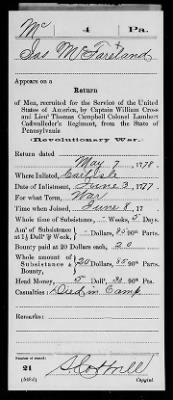 Mc 4 Pa.
Jas McFarland
Appears on a
Return
of Men, recruited for the Service of the United
States of America, by Captain William Cross
and Lieut Thomas Campbell Colonel Lambert
Cadwallader's Regiment, from the State of
Pennsylvania
(Revolutionary War.)
Return dated May 7, 1778.
Where Inlisted, Carlisle
Date of Inlistment, June 3, 1777.
For what Term, War
Time when Joined, June 8, 17
Whole time of Subsistance, - Weeks, 5 Days.
Am't of Subsistance at 1⅓ Doll' ⅌ Week, - Dollars, 85 90th Parts.
Bounty paid at 20 Dollars each, 20
Whole amount of Subsistance & Bounty, 20 Dollars, 85 90th Parts.
Head Money, 5 Doll', 30 90th Pts.
Casualties: Died in Camp
Remarks:
Number of record:
21
(545d)
Copyist.